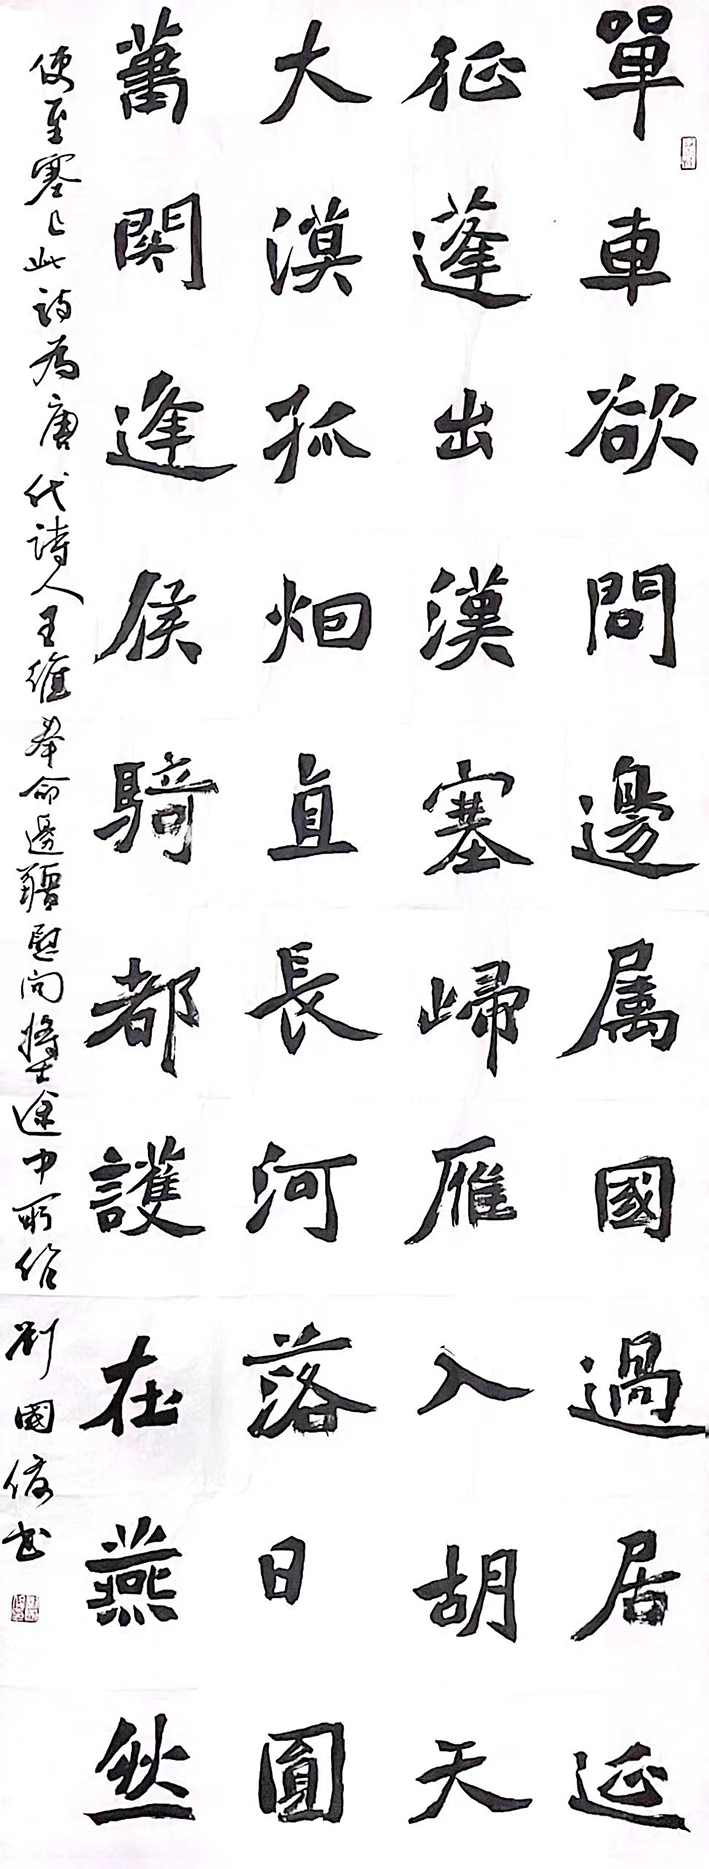 單車欲問邊属國過居延
征蓬出漢塞歸雁入胡天
大漠孤烟直長河落日圓
蕭関逢侯騎都護在燕然
使至塞上此詩為唐代詩人王維奉命邊疆慰问將士途中所作 刘國俊书